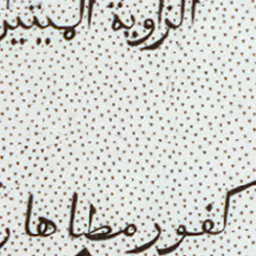 الزاوية الميتين
كفور مطاهار